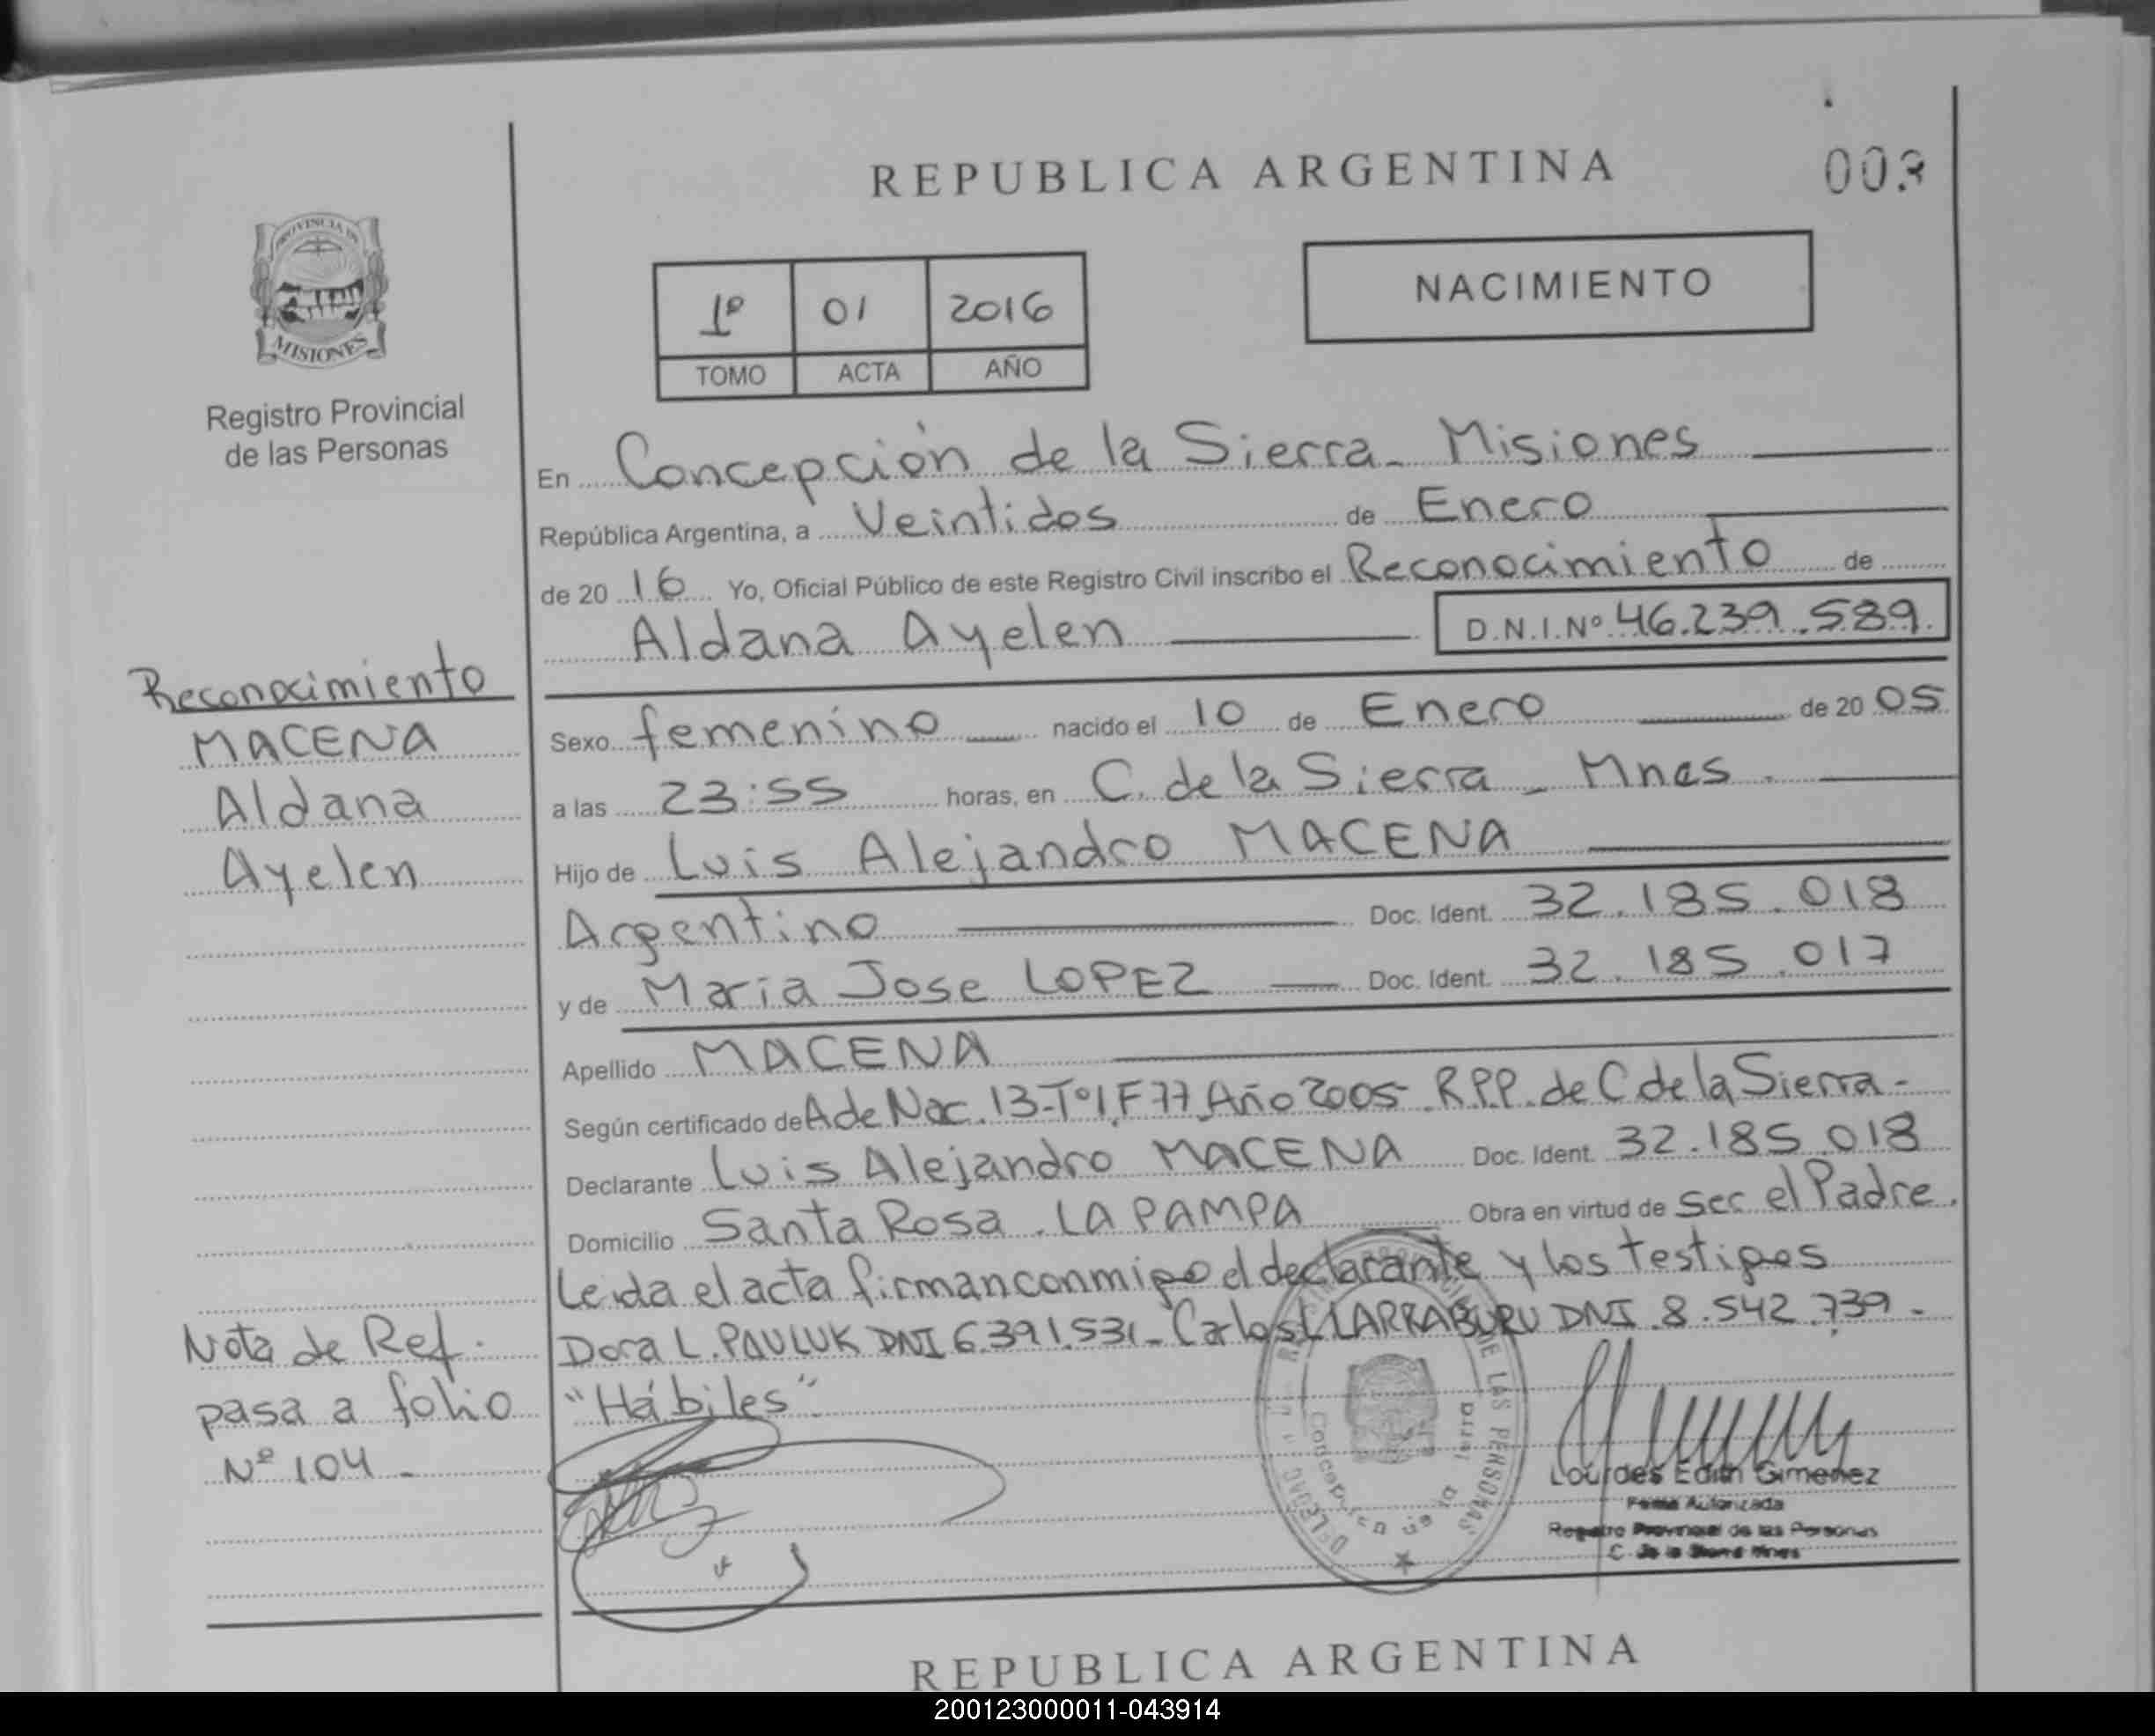 REPUBLICA ARGENTINA
003
PROVINCIA DE
MISIONES
Registro Provincial
de las Personas
1º 01 2016
TOMO ACTA AÑO
NACIMIENTO
En Concepción de la Sierra - Misiones
República Argentina, a Veintidos de Enero
de 20 16 Yo, Oficial Público de este Registro Civil inscribo el Reconocimiento de
Aldana Ayelen D.N.I.Nº 46.239.589
Sexo femenino nacido el 10 de Enero de 20 05
a las 23:55 horas, en C. de la Sierra - Mnes.
Hijo de Luis Alejandro MACENA
Argentino Doc. Ident. 32.185.018
y de Maria Jose LOPEZ Doc. Ident. 32.185.017
Apellido MACENA
Según certificado de A de Nac. 13-Tº1 F 77 Año 2005 R.P.P. de C de la Sierra-
Declarante Luis Alejandro MACENA Doc. Ident. 32.185.018
Domicilio Santa Rosa. LA PAMPA Obra en virtud de Ser el Padre.
Leida el acta firman conmigo el declarante y los testigos
Dora L. PAULUK DNI 6.391.531- Carlos LARRABURU DNI 8.542.739-
"Hábiles"
Reconocimiento
MACENA
Aldana
Ayelen
Nota de Ref.
pasa a folio
Nº 104-
DE LAS PERSONAS
Lourdes Edith Gimenez
Firma Autorizada
Registro Provincial de las Personas
C. de la Sierra Mnes
REPUBLICA ARGENTINA
200123000011-043914